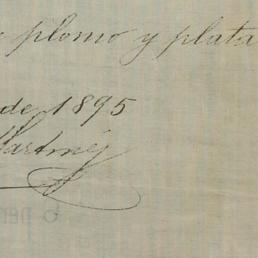 plomo y plata
de 1895
Martínez